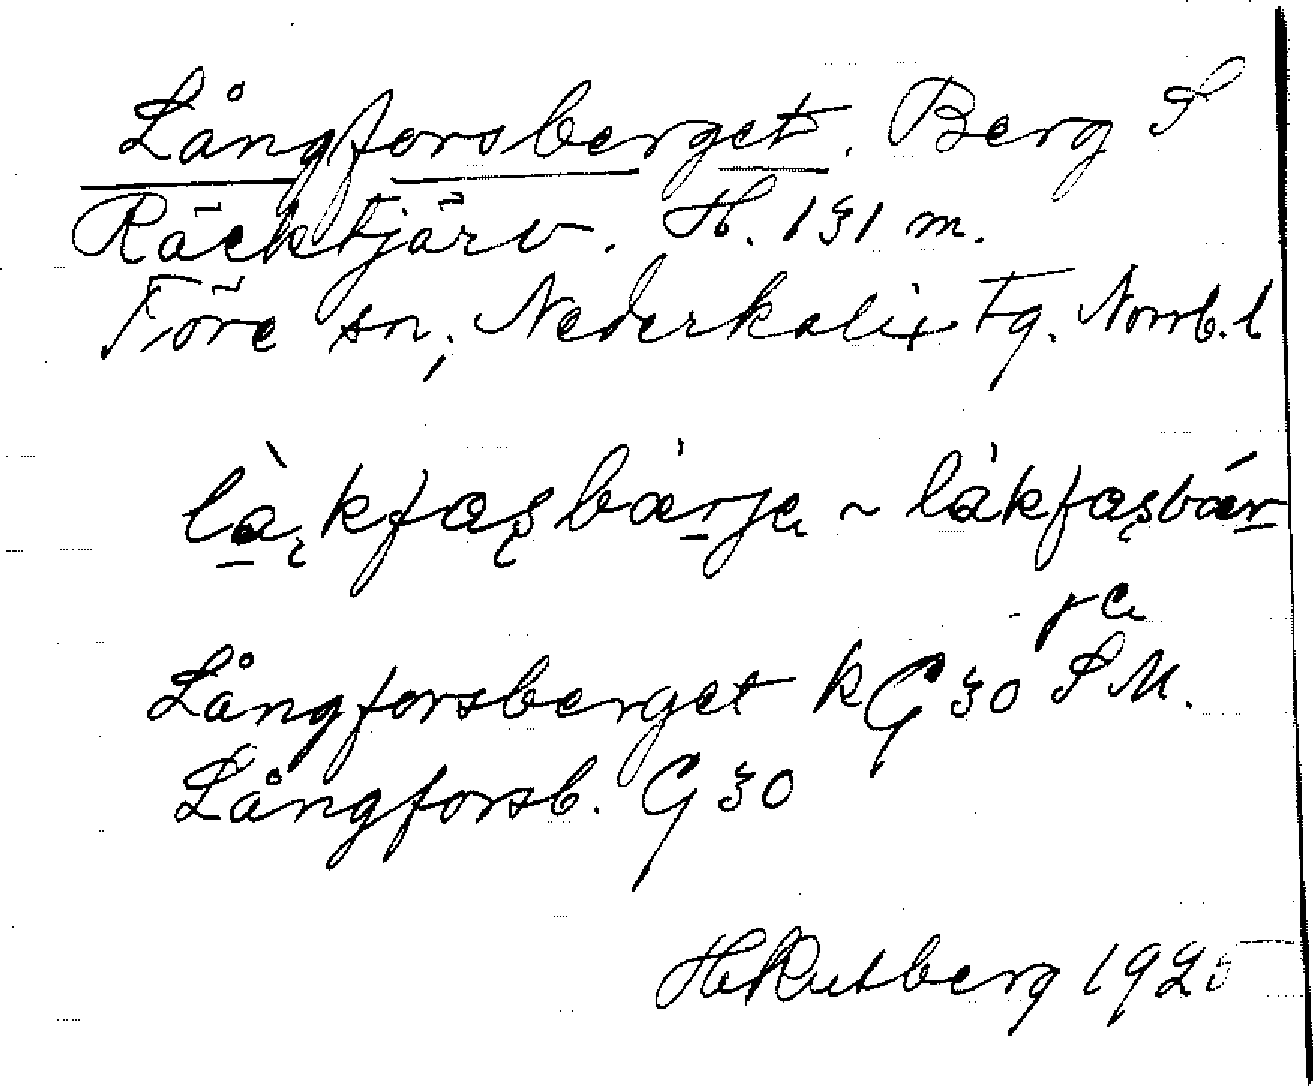 Långforsberget. Berg S
Räcktjärv. H. 131 m.
Töre sn, Nederkalix tg. Norrb. l
Långforsberget kG30 SM.
Långforsb. G30
H Rutberg 1925